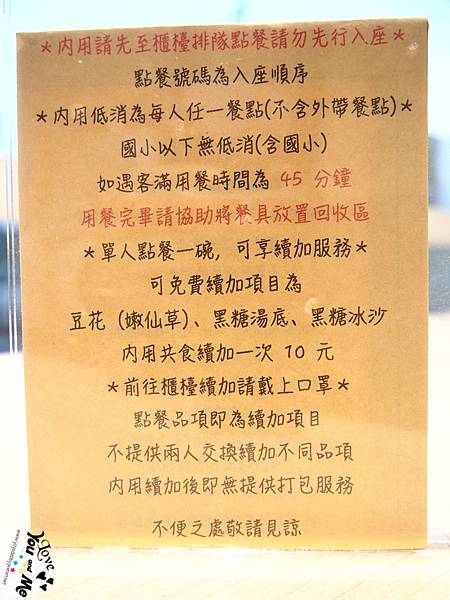 *內用請先至櫃檯排隊點餐請勿先行入座*
點餐號碼為入座順序
*內用低消為每人任一餐點(不含外帶餐點)*
國小以下無低消(含國小)
如遇客滿用餐時間為 45 分鐘
用餐完畢請協助將餐具放置回收區
*單人點餐一碗, 可享續加服務*
可免費續加項目為
豆花 (嫩仙草)、黑糖湯底、黑糖冰沙
內用共食續加一次 10 元
*前往櫃檯續加請戴上口罩*
點餐品項即為續加項目
不提供兩人交換續加不同品項
內用續加後即無提供打包服務
不便之處敬請見諒
Love
You and Me